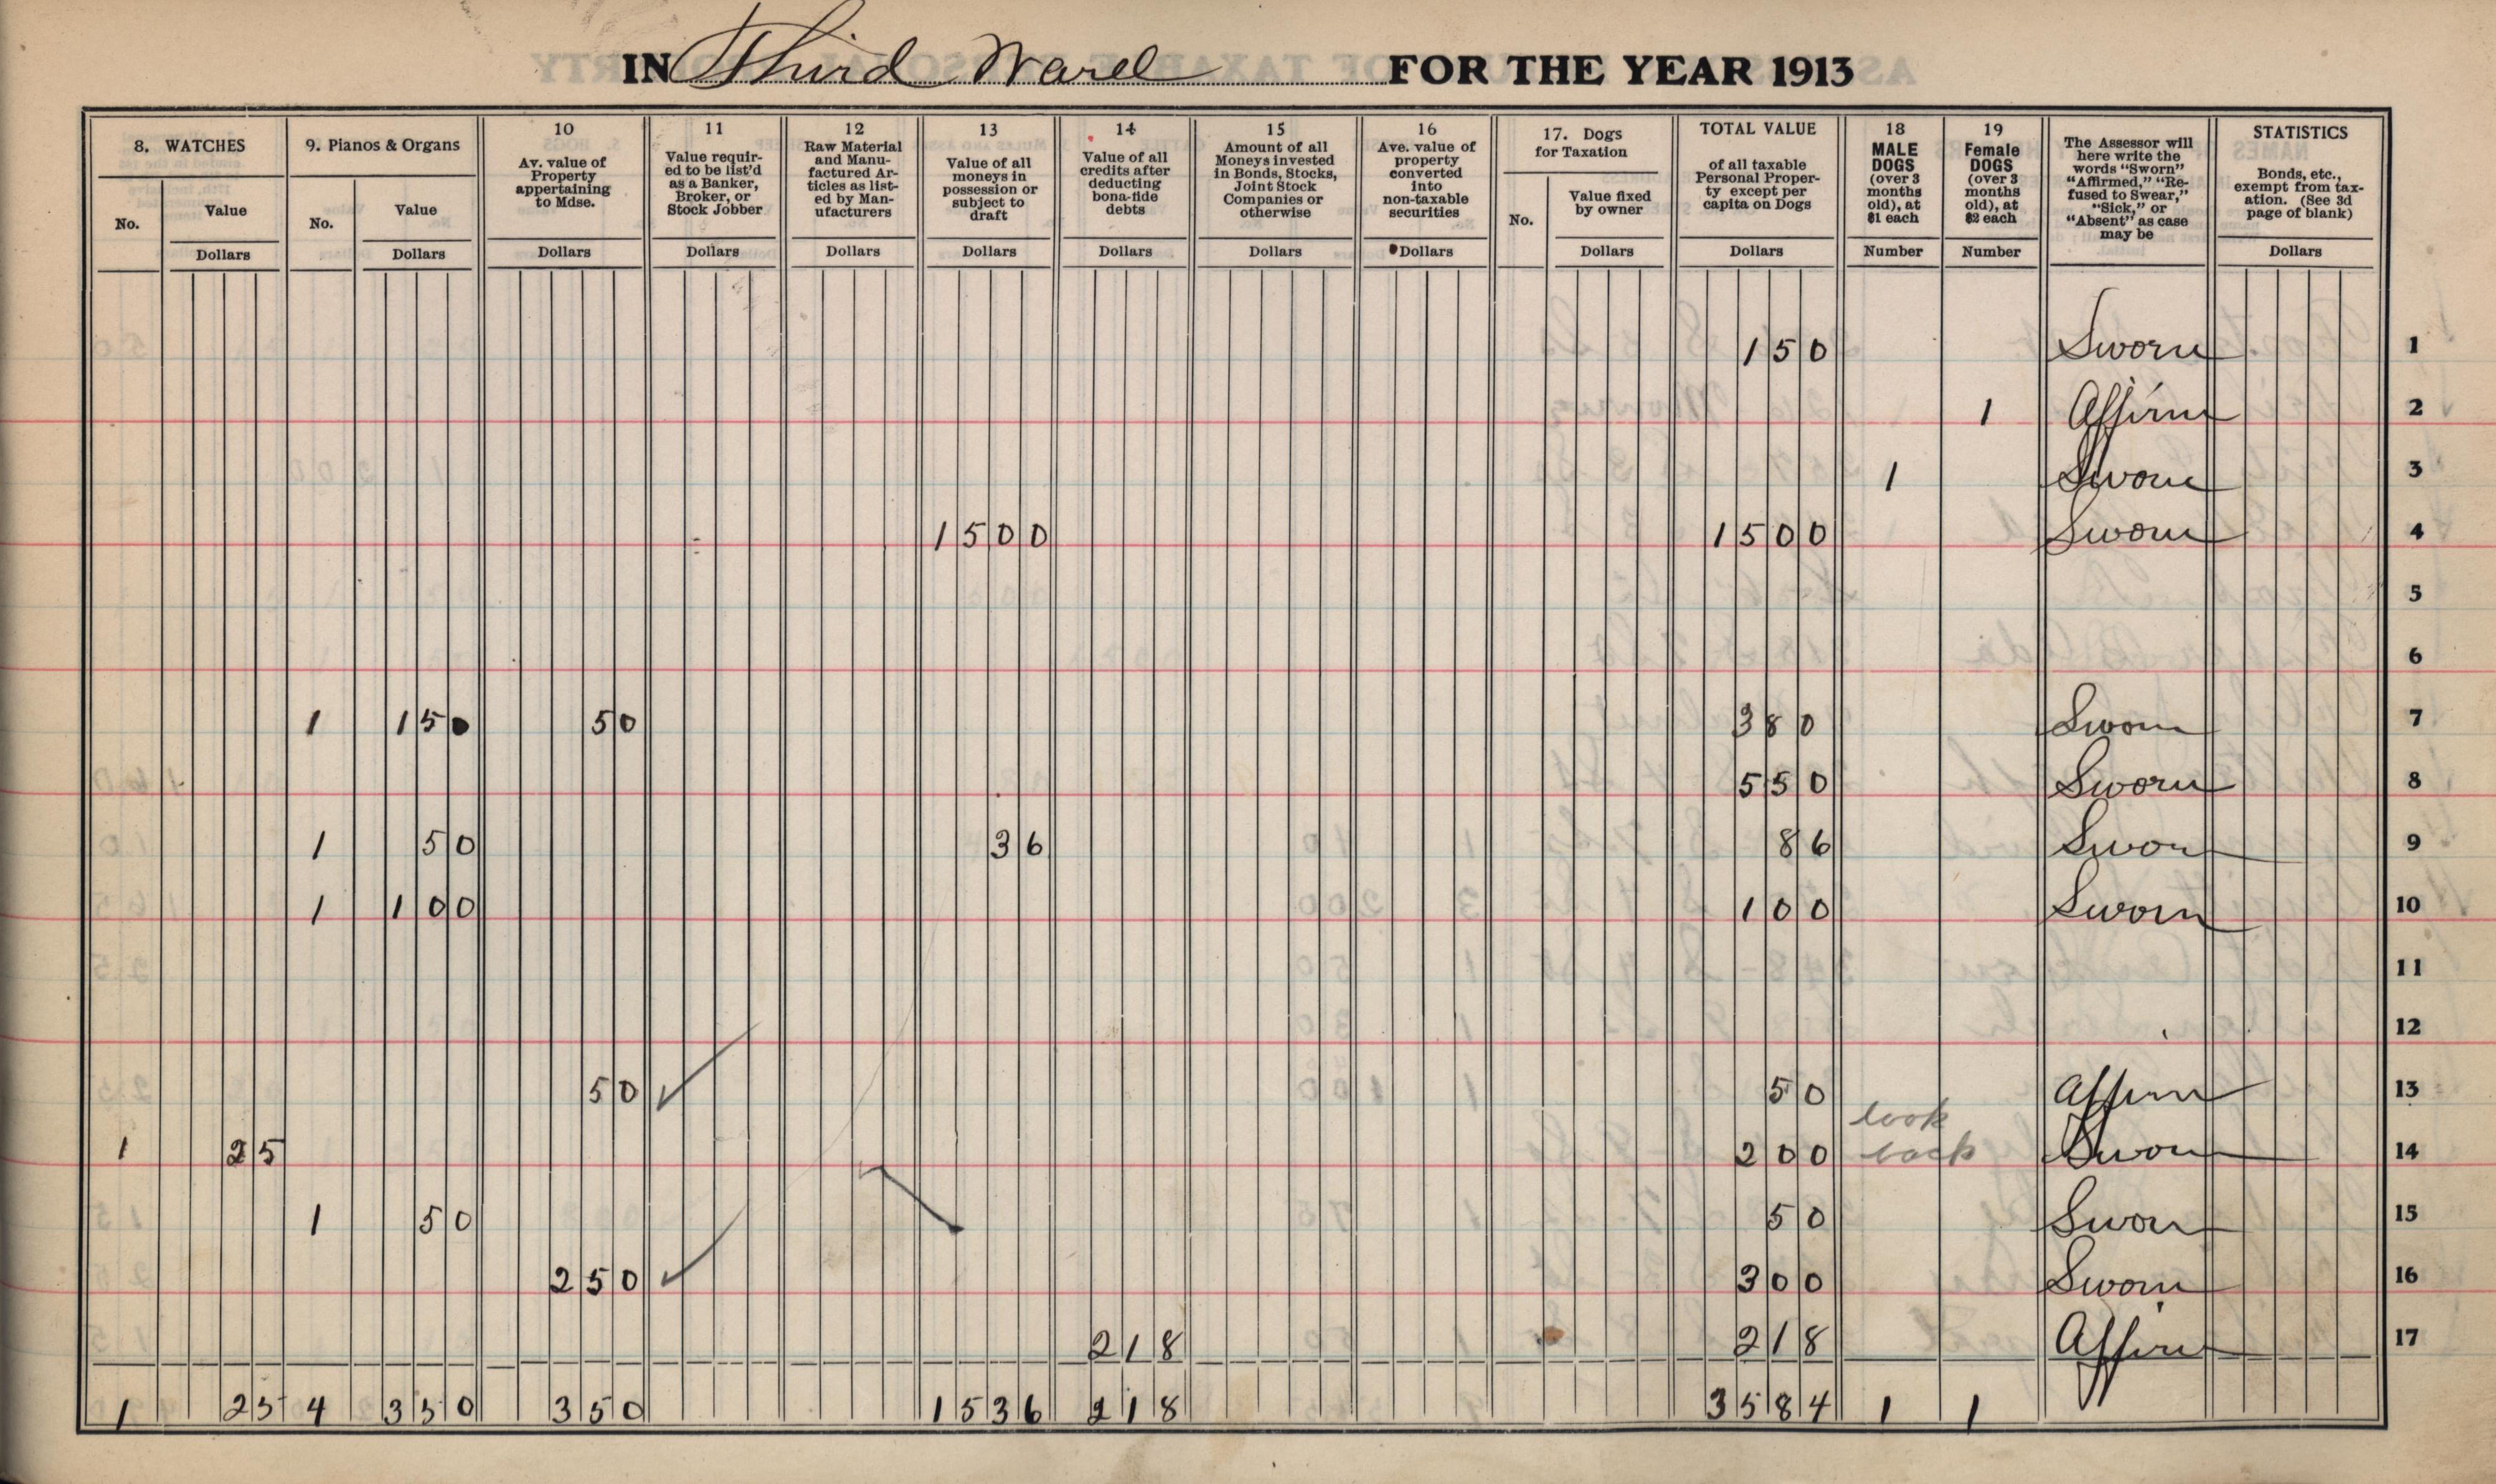 IN Third Ward FOR THE YEAR 1913
8. WATCHES
No.
Value
Dollars
9. Pianos & Organs
No.
Value
Dollars
10
Av. value of
Property
appertaining
to Mdse.
Dollars
11
Value requir-
ed to be list'd
as a Banker,
Broker, or
Stock Jobber
Dollars
12
Raw Material
and Manu-
factured Ar-
ticles as list-
ed by Man-
ufacturers
Dollars
13
Value of all
moneys in
possession or
subject to
draft
Dollars
14
Value of all
credits after
deducting
bona-fide
debts
Dollars
15
Amount of all
Moneys invested
in Bonds, Stocks,
Joint Stock
Companies or
otherwise
Dollars
16
Ave. value of
property
converted
into
non-taxable
securities
Dollars
17. Dogs
for Taxation
No.
Value fixed
by owner
Dollars
TOTAL VALUE
of all taxable
Personal Proper-
ty except per
capita on Dogs
Dollars
18
MALE
DOGS
(over 3
months
old), at
$1 each
Number
19
Female
DOGS
(over 3
months
old), at
$2 each
Number
The Assessor will
here write the
words "Sworn"
"Affirmed," "Re-
fused to Swear,"
"Sick," or
"Absent" as case
may be
STATISTICS
Bonds, etc.,
exempt from tax-
ation. (See 3d
page of blank)
Dollars
150 Sworn 1
1 Affirm 2
1 Sworn 3
1500 1500 Sworn 4
5
6
1 150 50 380 Sworn 7
550 Sworn 8
1 50 36 86 Sworn 9
1 100 100 Sworn 10
11
12
50 ✓ 50 Affirm 13
look
1 25 200 back Sworn 14
1 50 50 Sworn 15
250 ✓ 300 Sworn 16
218 218 Affirm 17
1 25 4 350 350 1536 218 3584 1 1